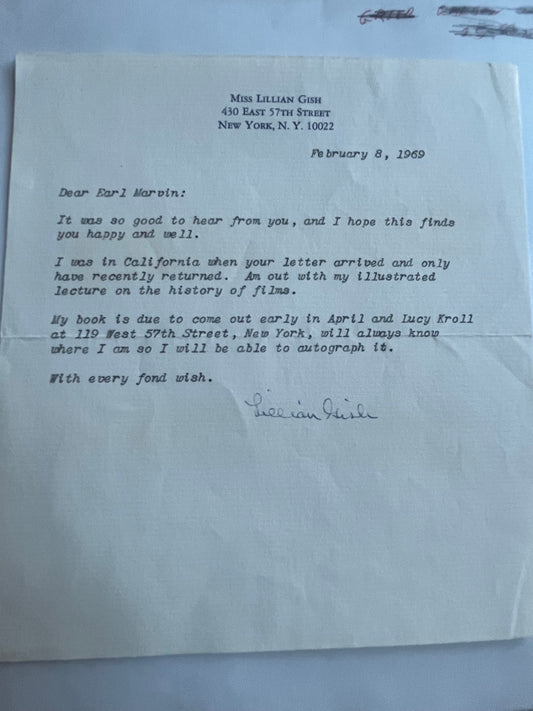 MISS LILLIAN GISH
430 EAST 57TH STREET
NEW YORK, N. Y. 10022
February 8, 1969
Dear Earl Marvin:
It was so good to hear from you, and I hope this finds
you happy and well.
I was in California when your letter arrived and only
have recently returned. Am out with my illustrated
lecture on the history of films.
My book is due to come out early in April and Lucy Kroll
at 119 West 57th Street, New York, will always know
where I am so I will be able to autograph it.
With every fond wish.
Lillian Gish